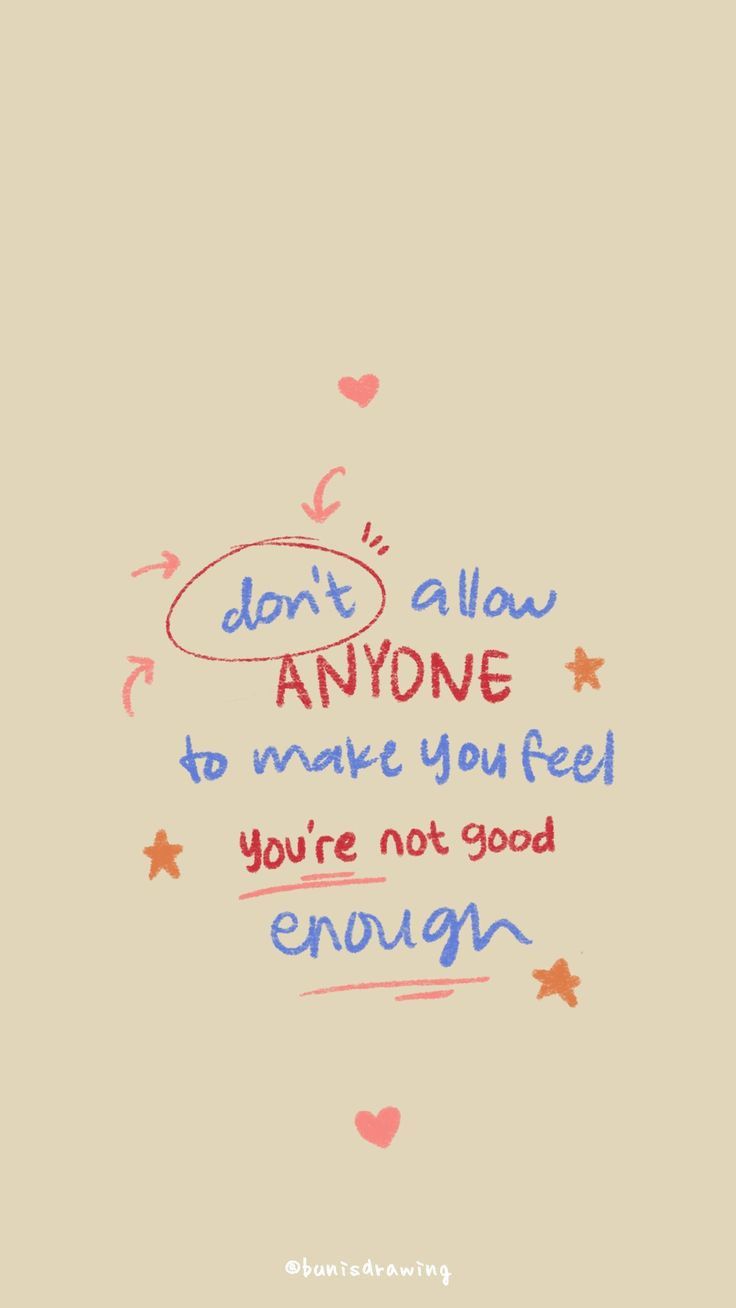 don't allow
ANYONE
to make you feel
you're not good
enough
@bunisdrawing